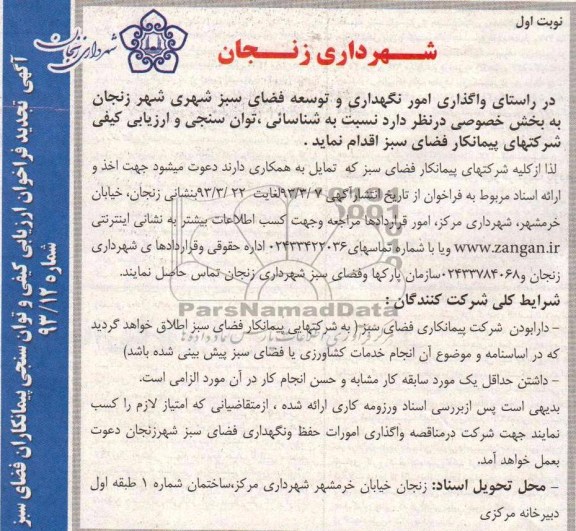 نوبت اول
شهرداری زنجان
شهرداری زنجان
آگهی تجدید فراخوان ارزیابی کیفی و توان سنجی پیمانکاران فضای سبز
شماره ۹۳/۱۲
در راستای واگذاری امور نگهداری و توسعه فضای سبز شهری شهر زنجان
به بخش خصوصی درنظر دارد نسبت به شناسائی ،توان سنجی و ارزیابی کیفی
شرکتهای پیمانکار فضای سبز اقدام نماید .
لذا ازکلیه شرکتهای پیمانکار فضای سبز که تمایل به همکاری دارند دعوت میشود جهت اخذ و
ارائه اسناد مربوط به فراخوان از تاریخ انتشارآگهی ۹۳/۳/۷لغایت ۹۳/۳/۲۲بنشانی زنجان، خیابان
خرمشهر، شهرداری مرکز، امور قراردادها مراجعه وجهت کسب اطلاعات بیشتر به نشانی اینترنتی
www.zangan.ir ویا با شماره تماسهای۰۲۴۳۳۴۲۲۰۳۶ اداره حقوقی وقراردادها ی شهرداری
زنجان و۰۲۴۳۳۷۸۴۰۶۸سازمان پارکها وفضای سبز شهرداری زنجان تماس حاصل نمایند.
شرایط کلی شرکت کنندگان :
– دارابودن شرکت پیمانکاری فضای سبز ( به شرکتهایی پیمانکار فضای سبز اطلاق خواهد گردید
که در اساسنامه و موضوع آن انجام خدمات کشاورزی یا فضای سبز پیش بینی شده باشد)
– داشتن حداقل یک مورد سابقه کار مشابه و حسن انجام کار در آن مورد الزامی است.
بدیهی است پس ازبررسی اسناد ورزومه کاری ارائه شده ، ازمتقاضیانی که امتیاز لازم را کسب
نمایند جهت شرکت درمناقصه واگذاری امورات حفظ ونگهداری فضای سبز شهرزنجان دعوت
بعمل خواهد آمد.
– محل تحویل اسناد: زنجان خیابان خرمشهر شهرداری مرکز،ساختمان شماره ۱ طبقه اول
دبیرخانه مرکزی
ParsNamadData